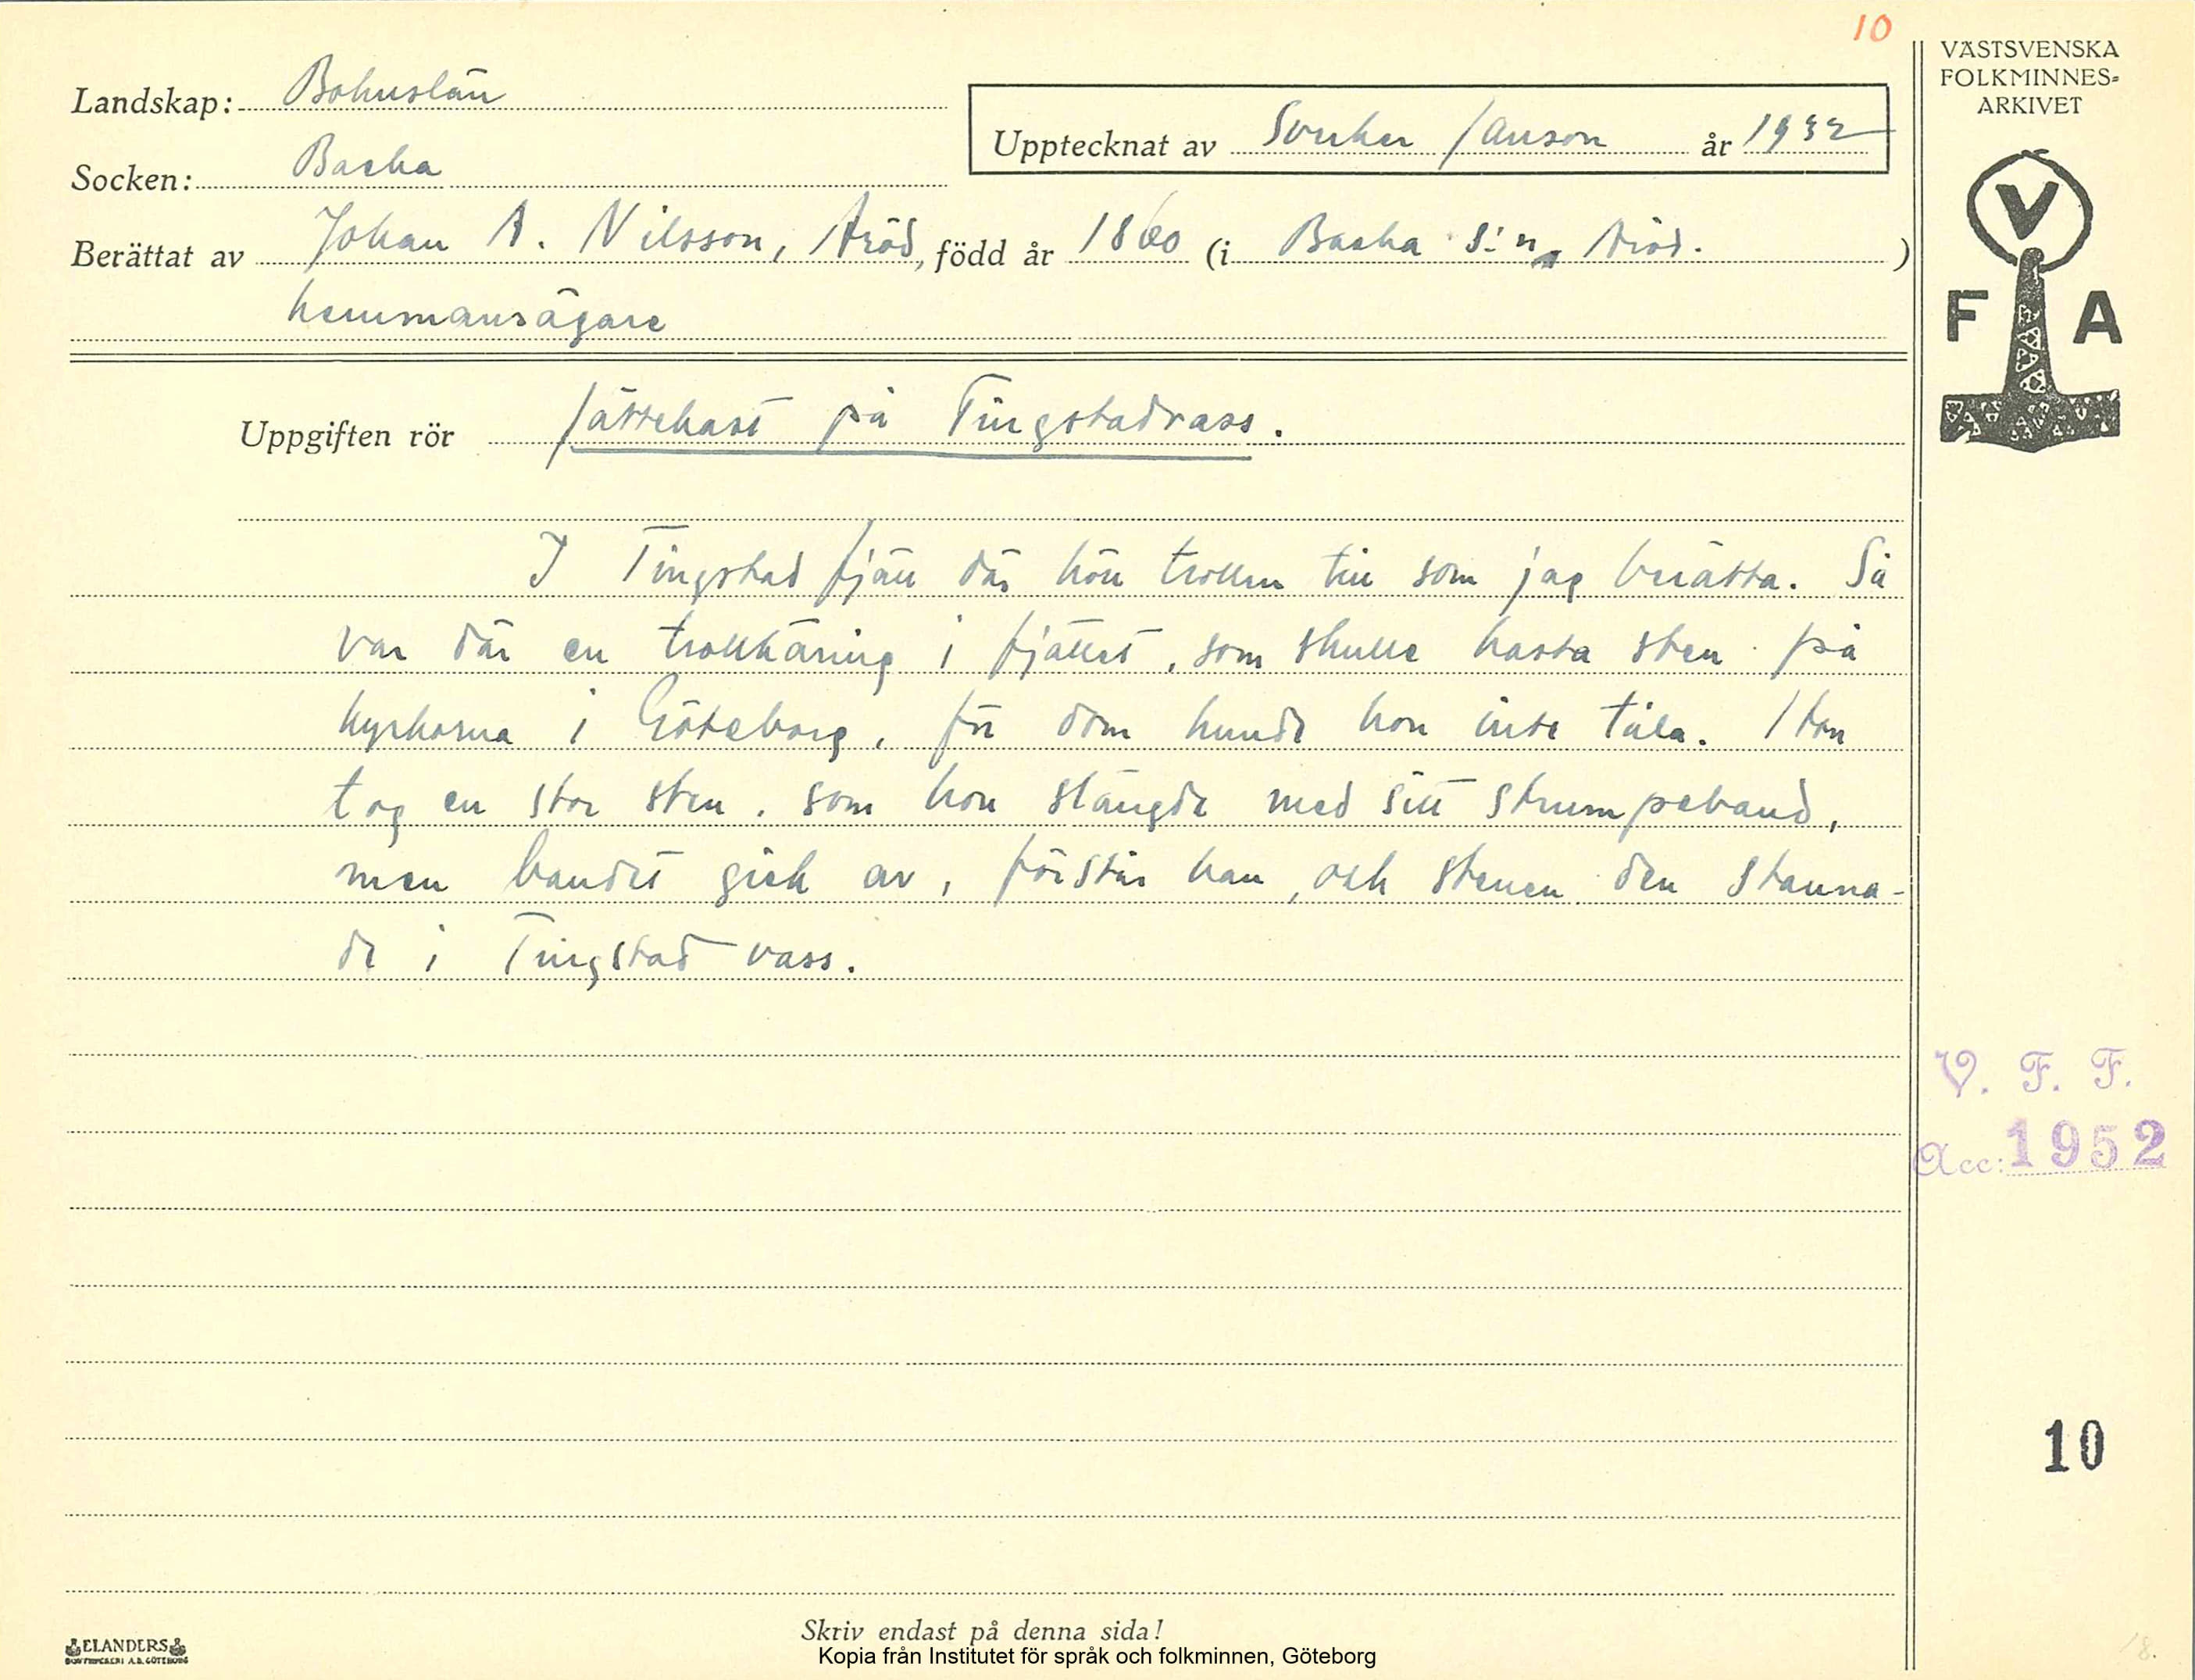 10
VÄSTSVENSKA
FOLKMINNES-
ARKIVET
Landskap: Bohuslän
Upptecknat av Sverker Janson år 1932
Socken: Backa
Berättat av Johan A. Nilsson, Aröd, född år 1860 (i Backa s:n, Aröd.)
hemmansägare
V
F A
Uppgiften rör Jättekast på Tingstadvass.
I Tingstad fjäll där höll trollen till som jag berätta. Så
var där en trollkäring i fjället, som skulle kasta sten på
kyrkorna i Göteborg, för dom kunde hon inte tåla. Hon
tog en stor sten, som hon slängde med sitt strumpeband,
men bandet gick av, förstår han, och stenen den stanna-
de i Tingstad vass.
V. F. F.
Acc: 1952
10
Skriv endast på denna sida!
Kopia från Institutet för språk och folkminnen, Göteborg
ELANDERS
BOKTRYCKERI A.B. GÖTEBORG
18.